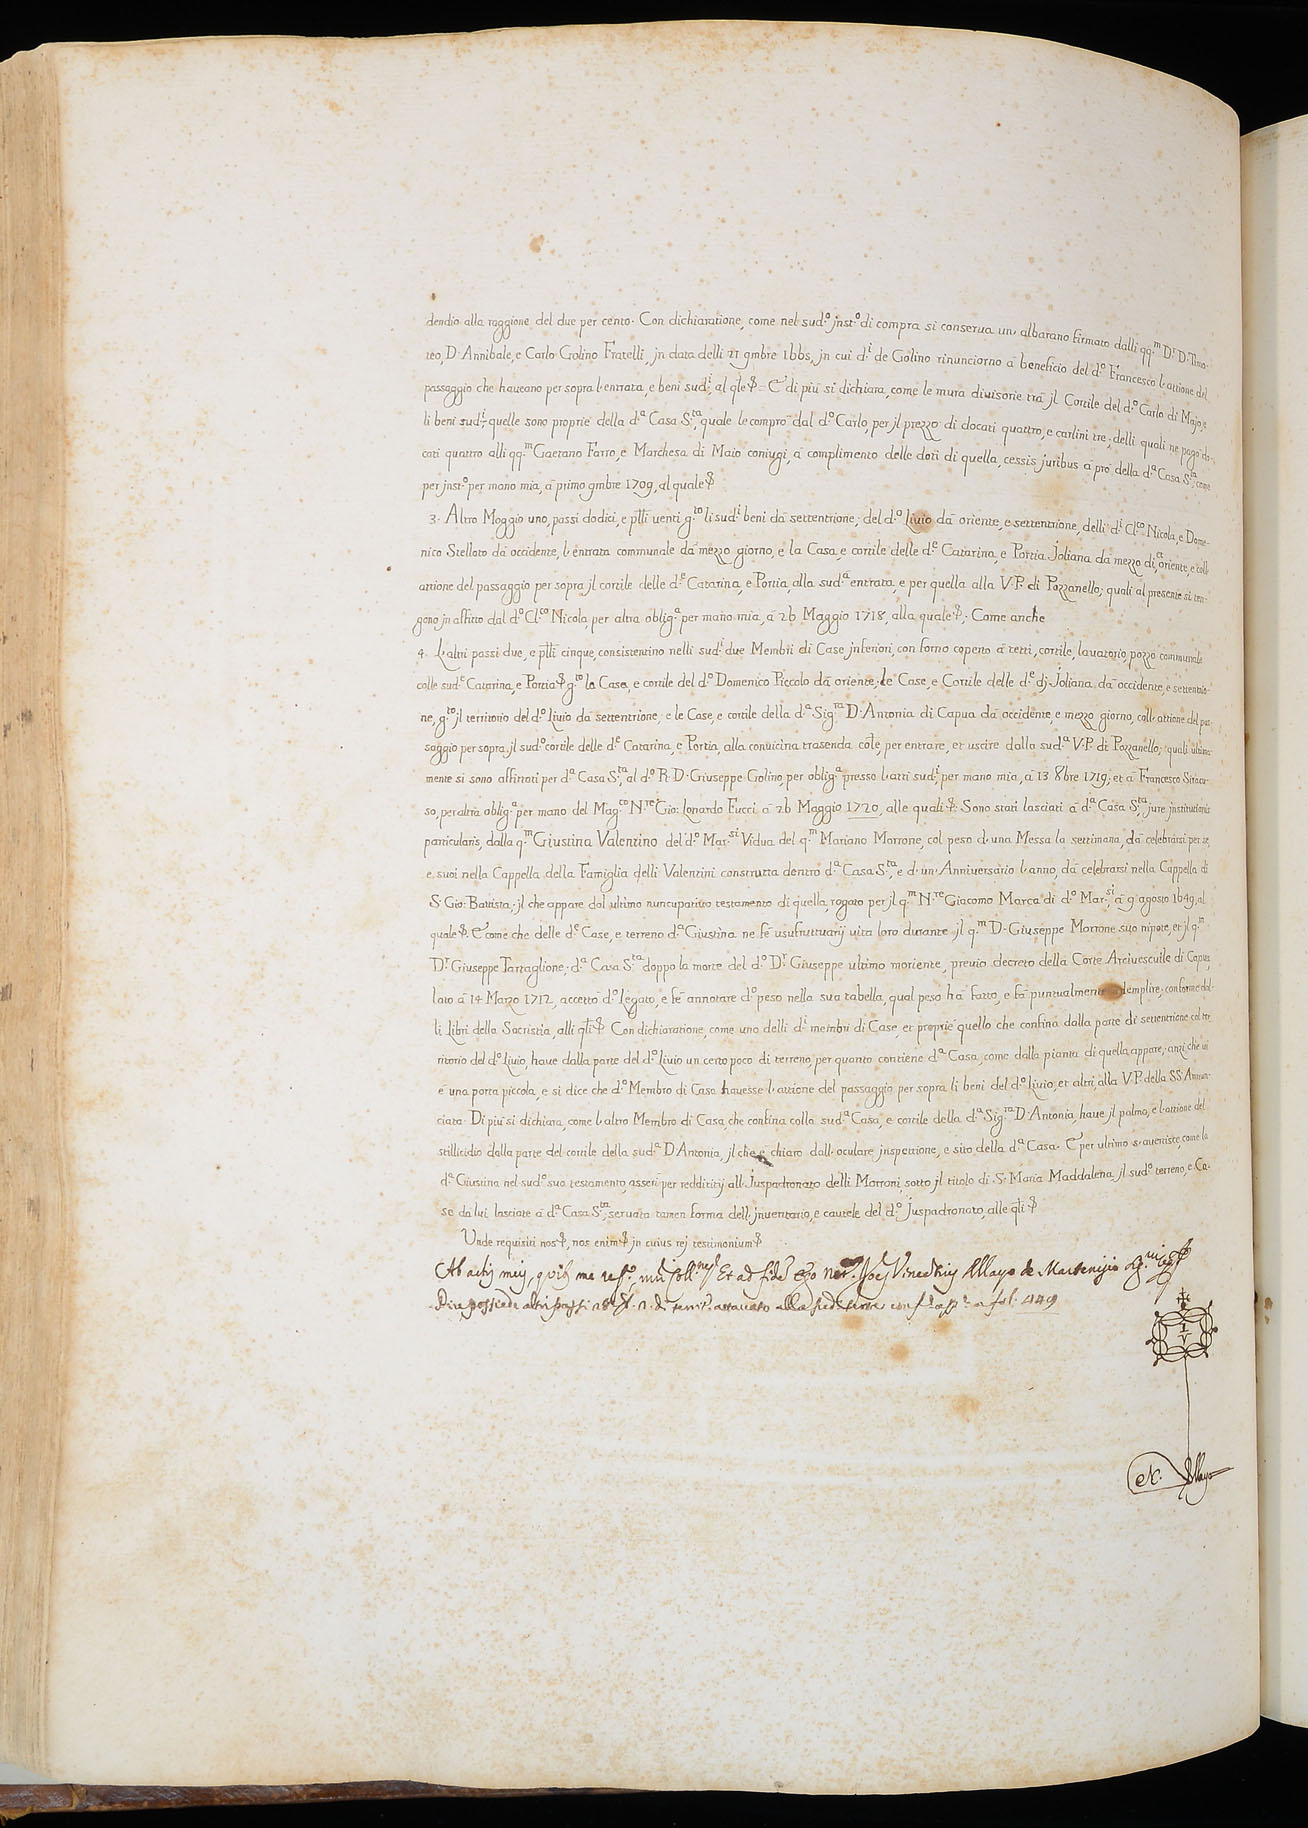 dendio alla raggione del due per cento. Con dichiaratione, come nel sud.º jnst.º di compra si conserua un' albarano firmato dalli qq.m D.r D. Timo-
teo, D. Annibale, e Carlo Golino Fratelli, jn data delli 21 9mbre 1665, jn cui d.i de Golino rinunciorno à beneficio del d.º Francesco l'attione del
passaggio che haueano per sopra l'entrata, e beni sud.i, al qle. E di più si dichiara, come le mura diuisorie trà jl Cortile del d.º Carlo di Majo, e
li beni sud.i quelle sono proprie della d.a Casa S.ta, quale le comprò dal d.º Carlo, per jl prezzo di docati quattro, e carlini tre, delli quali ne pagò do-
cati quattro alli qq.m Gaetano Farro, e Marchesa di Maio coniugi, à complimento delle doti di quella, cessis juribus à prò della d.a Casa S.ta, come
per jnst.º per mano mia, à primo 9mbre 1709, al quale
3. Altro Moggio uno, passi dodici, e ptti uenti g.to li sud.i beni dà settentrione, del d.º Liuio dà oriente, e settentrione, delli d.i Cl.co Nicola, e Dome-
nico Stellato dà occidente, l'entrata communale dà mezzo giorno, e la Casa, e cortile delle d.e Catarina, e Portia Joliana dà mezzo dì, oriente, e coll'
attione del passaggio per sopra jl cortile delle d.e Catarina, e Portia, alla sud.a entrata, e per quella alla V.P. di Pozzanello; quali al presente si ten-
gono jn affitto dal d.º Cl.co Nicola, per altra oblig.a per mano mia, à 26 Maggio 1718, alla quale; Come anche
4. L'altri passi due, e ptti cinque, consistentino nelli sud.i due Membri di Case jnferiori, con forno coperto à tetti, cortile, lauatorio, pozzo communale
colle sud.e Catarina, e Portia g.to la Casa, e cortile del d.º Domenico Piccolo dà oriente; le Case, e Cortile delle d.e dj Joliana dà occidente, e settentrio-
ne, g.to jl territorio del d.º Liuio dà settentrione, e le Case, e cortile della d.a Sig.ra D. Antonia di Capua dà occidente, e mezzo giorno, coll'attione del pas-
saggio per sopra jl sud.º cortile delle d.e Catarina, e Portia, alla conuicina trasenda cole, per entrare, et uscire dalla sud.a V.P. di Pozzanello; quali ultima-
mente si sono affittati per d.a Casa S.ta, al d.º R. D. Giuseppe Golino, per oblig.a presso l'atti sud.i per mano mia, à 13 8bre 1719; et à Francesco Siracu-
so, per altra oblig.a per mano del Mag.co N.re Gio: Lonardo Fucci à 26 Maggio 1720, alle quali. Sono stati lasciati à d.a Casa S.ta jure jnstitutionis
particularis, dalla q.m Giustina Valentino del d.º Mar.si Vidua del q.m Mariano Morrone, col peso d'una Messa la settimana, dà celebrarsi per se,
e suoi nella Cappella della Famiglia delli Valentini construtta dentro d.a Casa S.ta, e d'un' Anniuersario l'anno, dà celebrarsi nella Cappella di
S. Gio: Battista; jl che appare dal ultimo nuncupatiuo testamento di quella, rogato per jl q.m N.re Giacomo Marca di d.º Mar.si, à 9 agosto 1649, al
quale. E come che delle d.e Case, e terreno d.a Giustina ne fè usufruttuarij uita loro durante jl q.m D. Giuseppe Morrone suo nipote, et jl q.m
D.r Giuseppe Tartaglione; d.a Casa S.ta doppo la morte del d.º D.r Giuseppe ultimo moriente, preuio decreto della Corte Arciuescuile di Capua,
lato à 14 Marzo 1712, accettò d.º Legato, e fè annotare d.º peso nella sua tabella, qual peso hà fatto, e fà puntualmente adempire, conforme dal-
li Libri della Sacristia, alli qli. Con dichiaratione, come uno delli d.i membri di Case, et proprie quello che confina dalla parte di settentrione col ter-
ritorio del d.º Liuio, haue dalla parte del d.º Liuio un certo poco di terreno, per quanto contiene d.a Casa, come dalla pianta di quella appare, anzi, che ui
è una porta piccola, e si dice che d.º Membro di Casa hauesse l'attione del passaggio per sopra li beni del d.º Liuio, et altri, alla V.P. della SS. Annun-
ciata. Di più si dichiara, come l'altro Membro di Casa, che confina colla sud.a Casa, e cortile della d.a Sig.ra D. Antonia, haue jl palmo, e l'attione del
stillicidio dalla parte del cortile della sud.a D. Antonia, jl che è chiaro dall'oculare jnspettione, e sito della d.a Casa. E per ultimo s'auertisce, come la
d.a Giustina nel sud.º suo testamento, asserì per reddititij all'Juspadronato delli Morroni, sotto jl titolo di S. Maria Maddalena, jl sud.º terreno, e Ca-
se dà lui lasciate à d.a Casa S.ta, seruata tamen forma dell'jnuentario, e cautele del d.º Juspadronato, alle qli
Unde requisiti nos, nos enim jn cuius rej testimonium
Ab actis meis, quib. me Et ad fidem ego Not. de Martenisio
Di più possiede altri passi di terrì. attaccato alla a fol. 449
N. Mayo